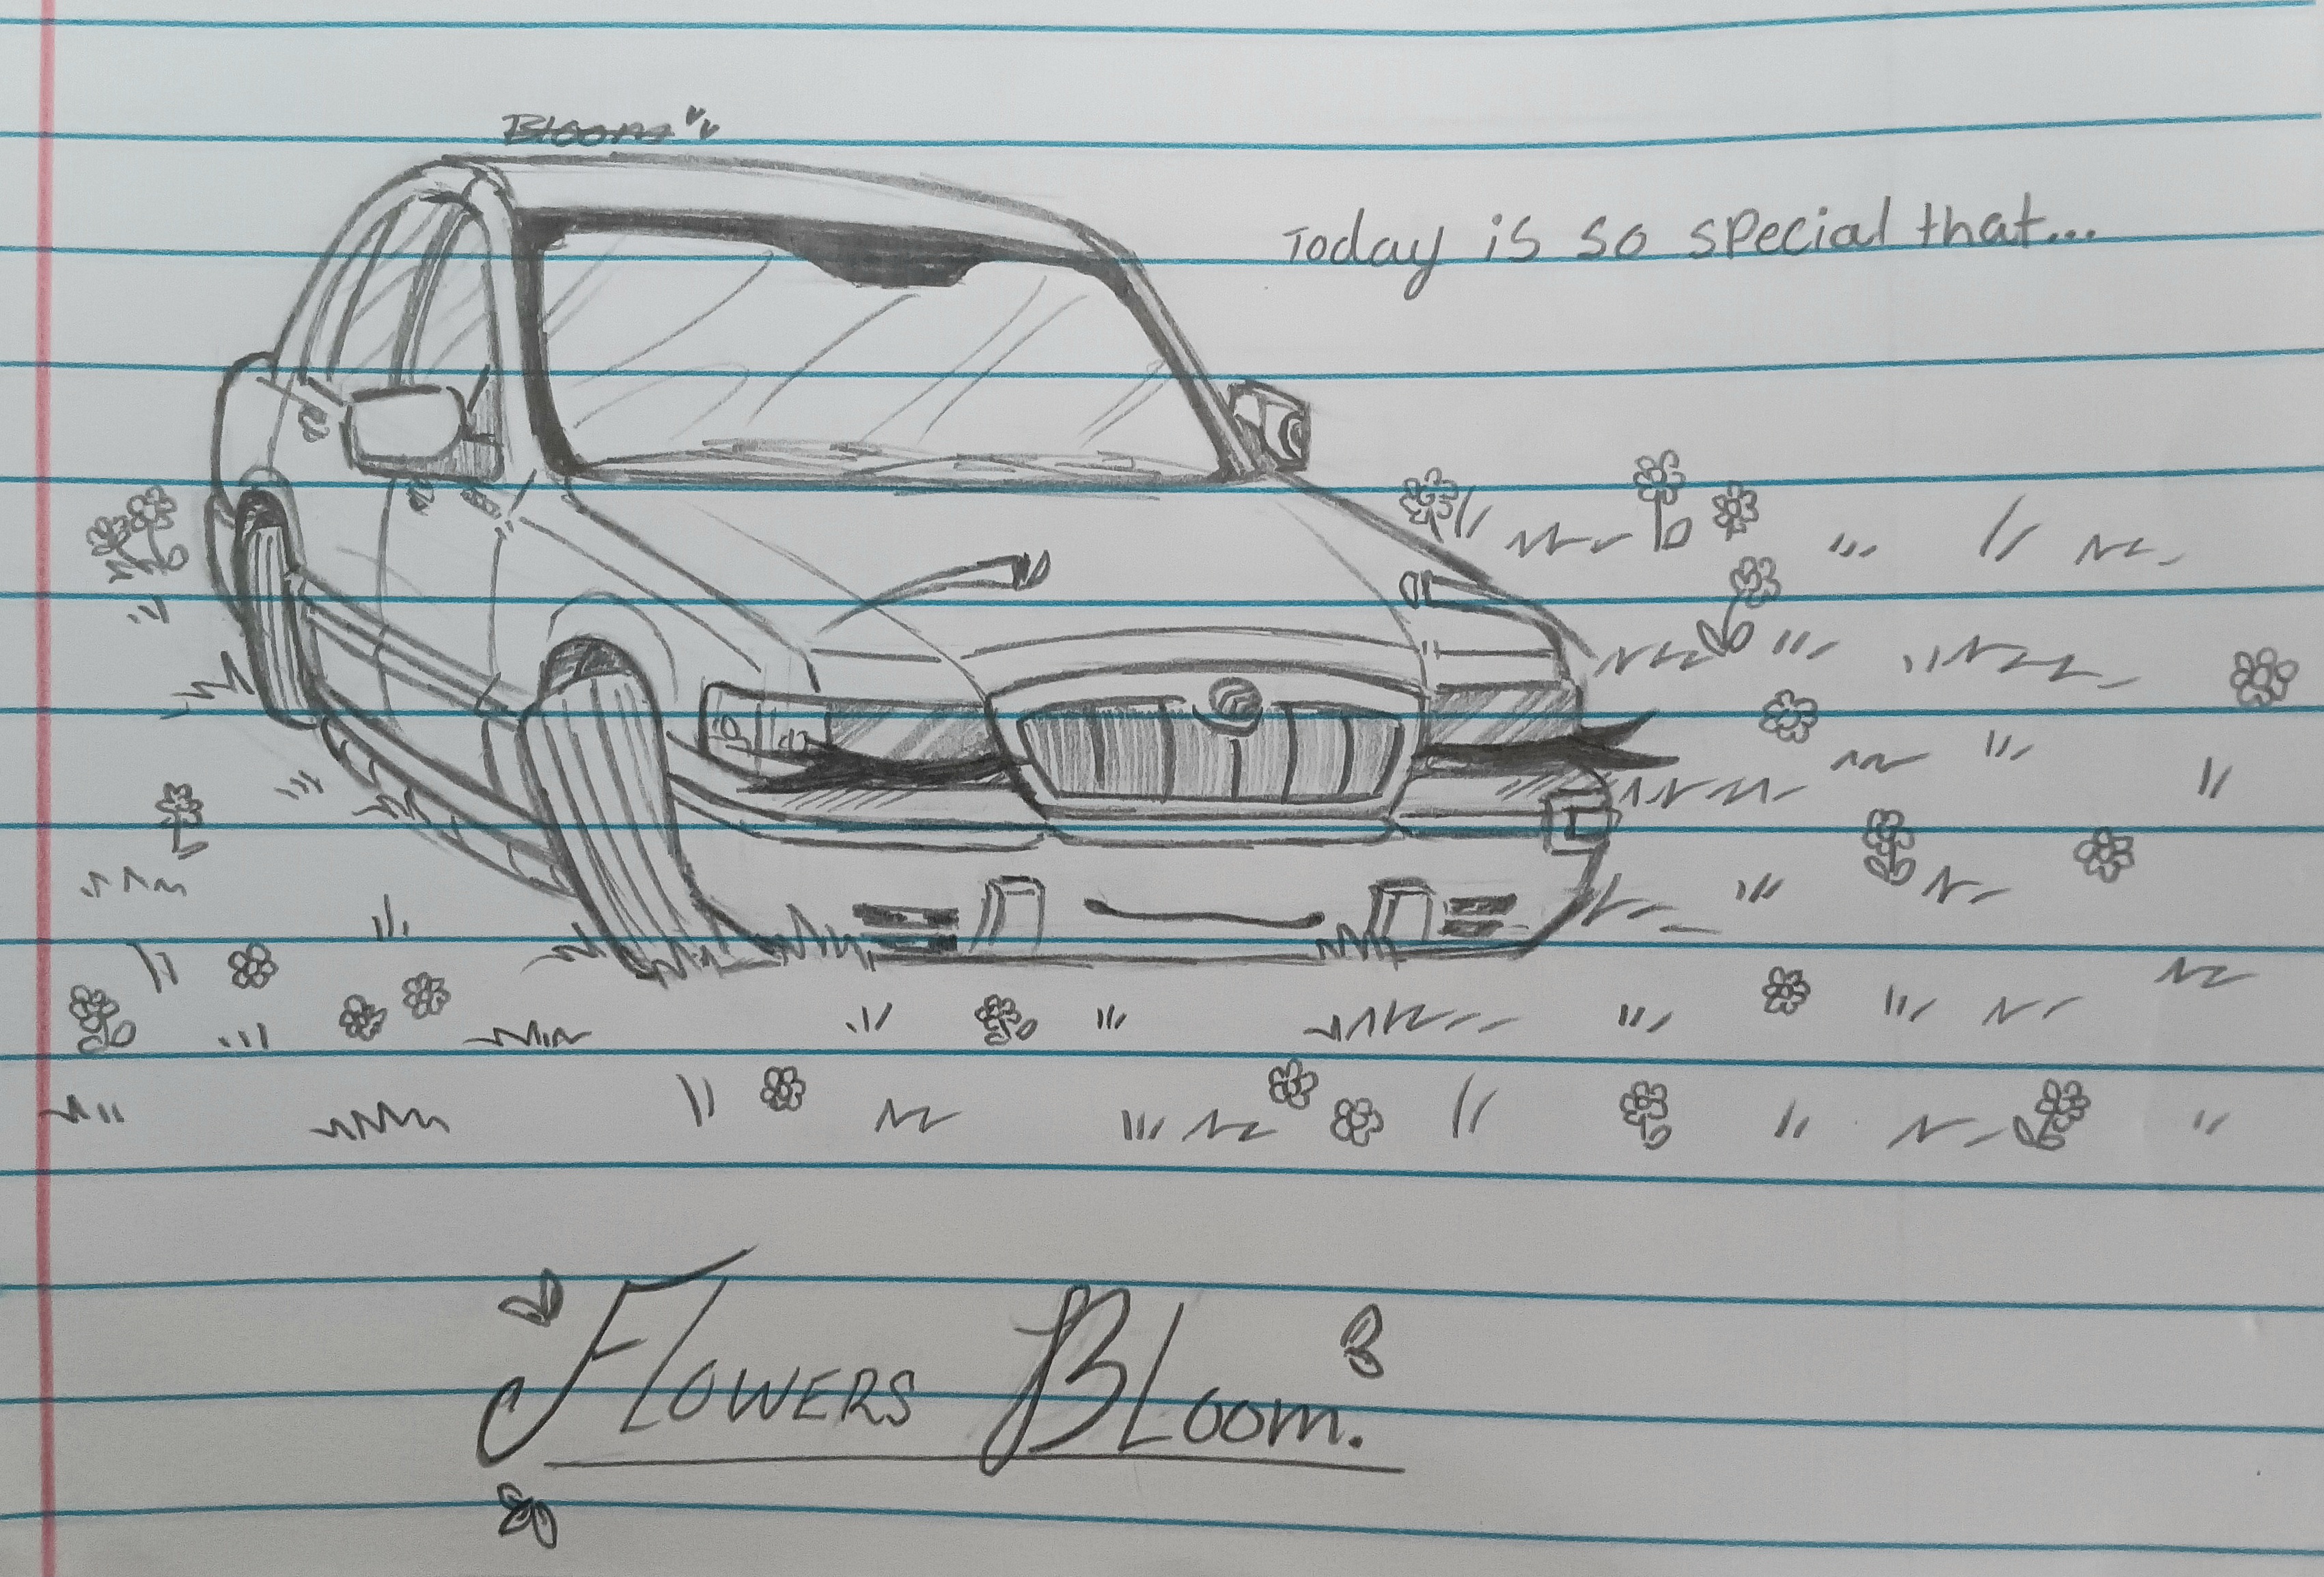 Bloom
Today is so special that...
FLOWERS BLoom.